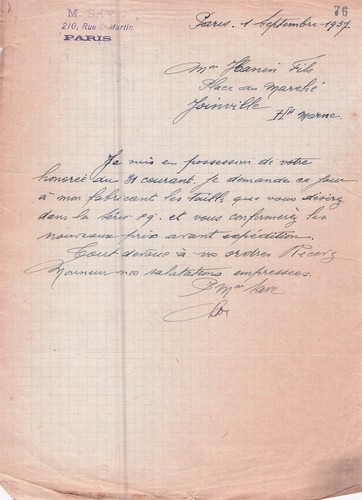 76
M. SAV
210, Rue St-Martin
PARIS
Paris. 1 Septembre 1937
Mon Hanin Fils
Place du Marché
Joinville
Hte Marne.
Je suis en possession de votre
honorée du 31 courant. je demande ce jour
à mon fabricant les taills que vous désirez
dans la série 29. et vous confirmerez les
nouveaux prix avant expédition.
Tout dévoué à vos ordres Recevez
Monsieur mes salutations empressées.
P Mon Save